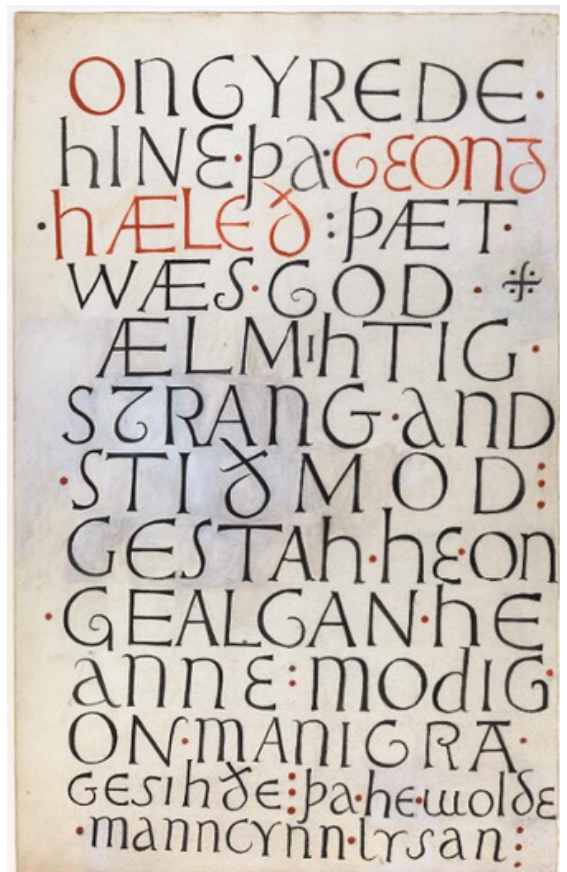 ONGYREDE·
hINE·þa·GEONG
·hÆLEð:þÆT·
WÆS·GOD·
ÆLMIhTIG·
STRANG·aND
·STIðMOD:
GESTAh·hEon
·GEALGAN·hE
annE:modIG·
ON·mANIGRA·
GESIhðE:þa·he·woldE
·manncynn·lysan: